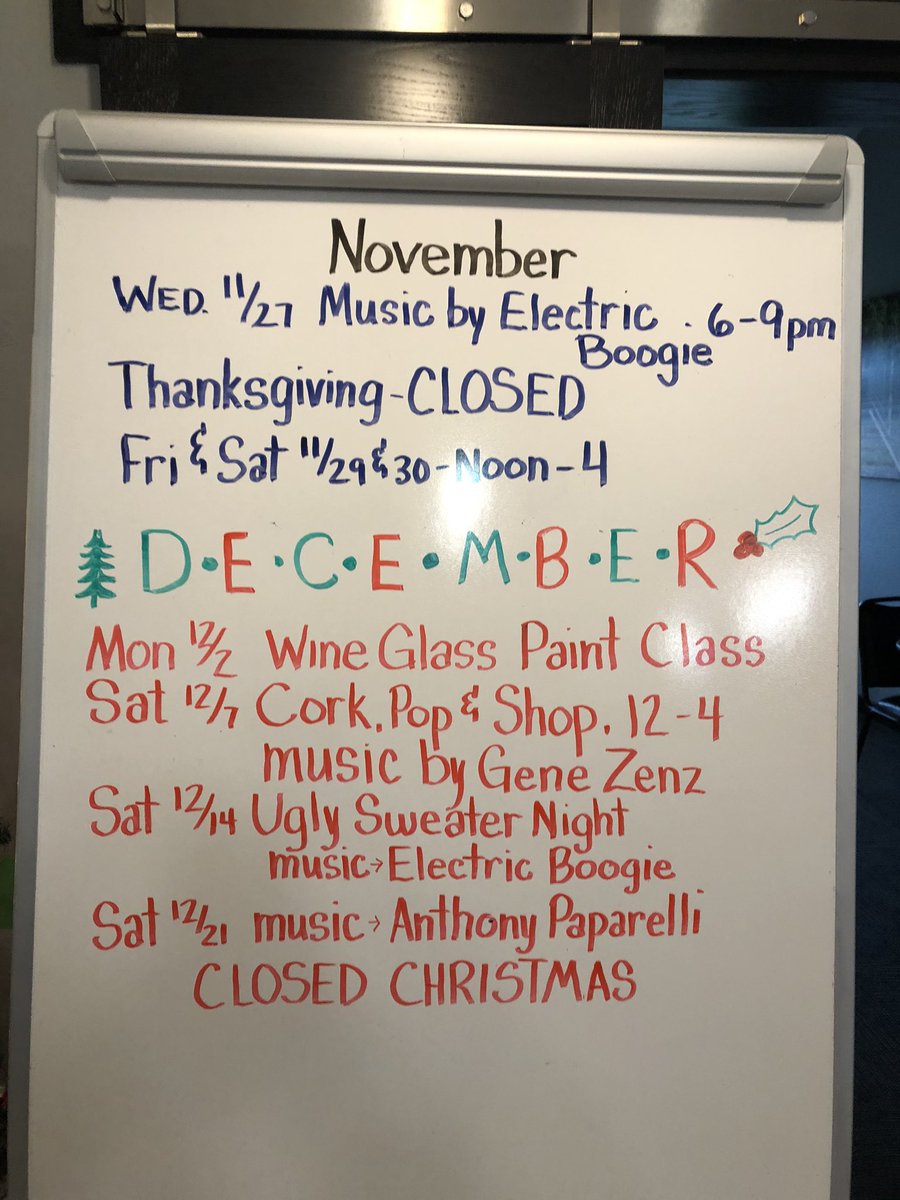 November
WED. 11/27 Music by Electric . 6-9pm
Boogie
Thanksgiving - CLOSED
Fri & Sat 11/29 & 30 - Noon - 4
D•E•C•E•M•B•E•R
Mon 12/2 Wine Glass Paint Class
Sat 12/7 Cork, Pop & Shop. 12-4
music by Gene Zenz
Sat 12/14 Ugly Sweater Night
music → Electric Boogie
Sat 12/21 music → Anthony Paparelli
CLOSED CHRISTMAS